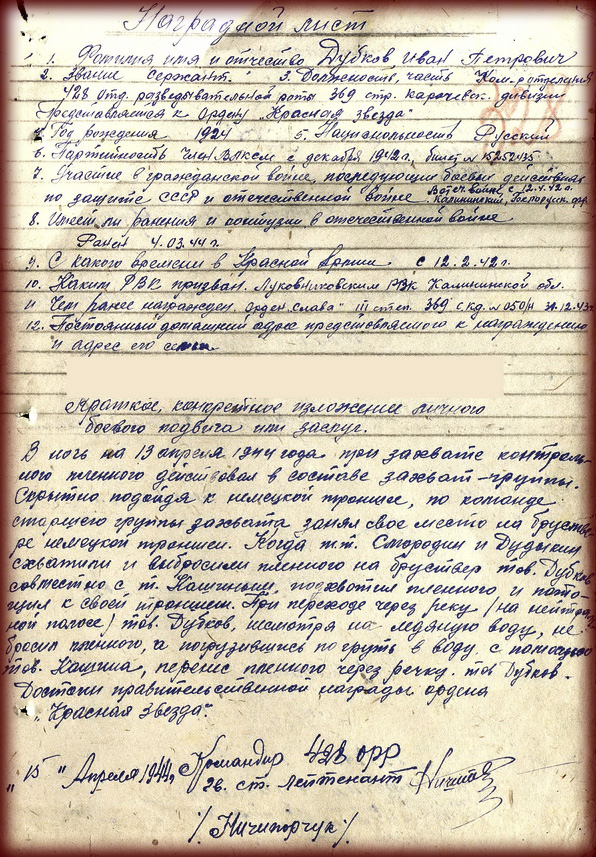 Наградной лист
1. Фамилия имя и отчество Дубков Иван Петрович
2. Звание Сержант. 3. Должность, часть Ком-р отделения
428 отд. разведывательной роты 369 стр. карачевск. дивизии
Представляется к Ордену "Красная звезда"
4. Год рождения 1924 5. Национальность Русский
6. Партийность Член ВЛКСМ с декабря 1942г. билет №15252435
7. Участие в гражданской войне, последующих боевых действиях
по защите СССР и отечественной войне В отеч. войне с 12.4.42г.
Калининский, Белорусск. фр.
8. Имеет ли ранения и контузии в отечественной войне
Ранен 4.03.44 г.
9. С какого времени в Красной Армии с 12.2.42г.
10. Каким РВК призван. Луковниковским РВК Калининской обл.
11 Чем ранее награжден. Орден "Слава" III степ. 369 с.кд. №050/н 31.12.43г
12. Постоянный домашний адрес представляемого к награждению
и адрес его семьи
Краткое, конкретное изложение личного
боевого подвига или заслуг.
В ночь на 13 апреля 1944 года при захвате контроль-
ного пленного действовал в составе захват-группы.
Скрытно подойдя к немецкой траншее, по команде
старшего группы захвата занял свое место на бруств-
ре немецкой траншеи. Когда т.т. Смородин и Дудыкин
схватили и выбросили пленного на бруствер тов. Дубков
совместно с т. Кашиным, подхватил пленного и пота-
щил к своей траншеи. При переходе через реку (на нейтраль-
ной полосе) тов. Дубков, несмотря на ледяную воду, не
бросил пленного, а погрузившись по грудь в воду с помощью
тов. Кашина, перенис пленного через речку. тов Дубков.
Достоин правительственной награды ордена
"Красная Звезда".
Командир 428 орр
"15" Апреля 1944г гв. ст. лейтенант
/Ничипорчук/